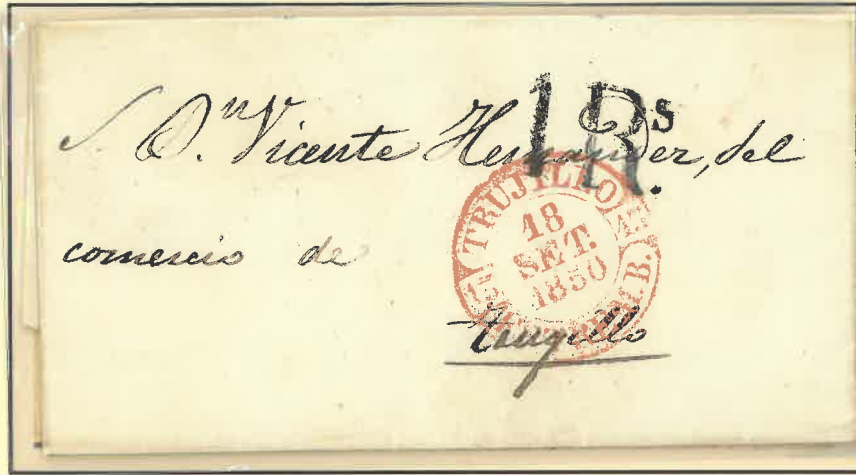 S. Dⁿ. Vicente Hernandez, del
1Rˢ.
comercio de
TRUJILLO
18
SET.
1850
EXTREM. B.
truxillo